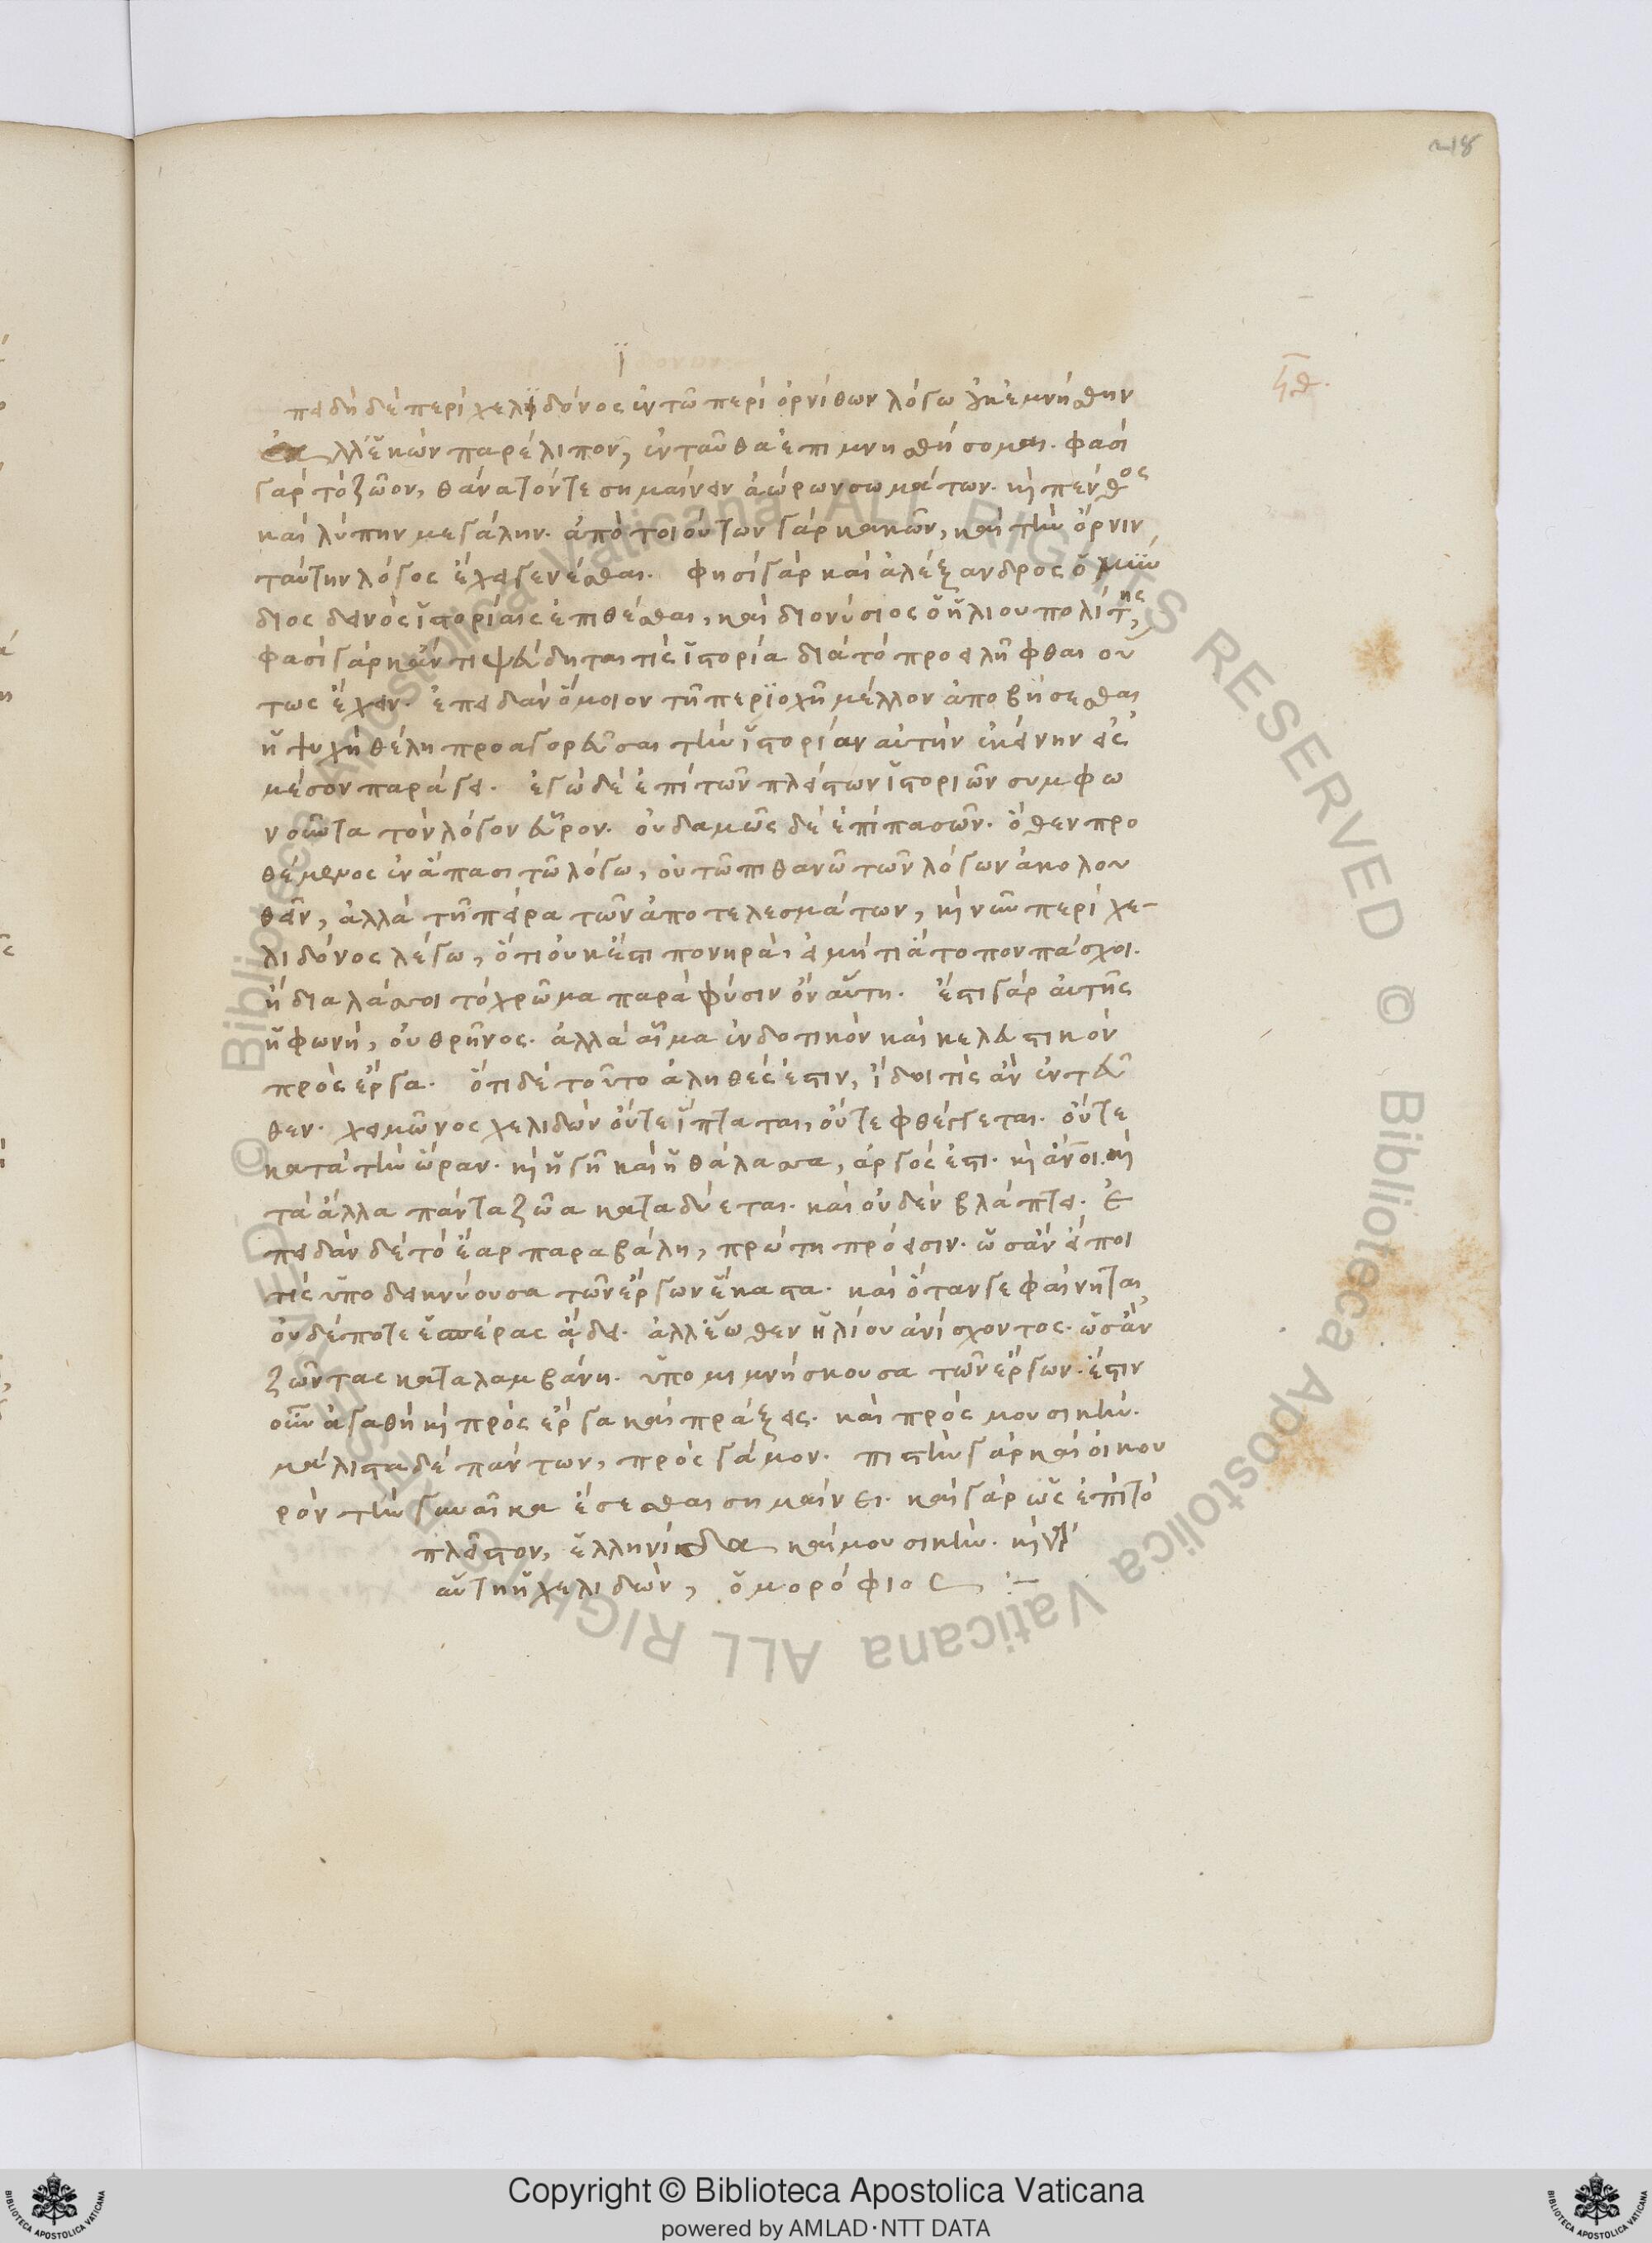 218
ϊ
ϟθ.
πειδὴ δὲ περὶ χελιδόνος ἐν τῶ περὶ ὀρνίθων λόγω οὐκ ἐμνήσθην
ἀλλ' ἑκὼν παρέλιπον, ἐνταῦθα ἐπιμνησθήσομαι. φασὶ
γὰρ τὸ ζῶον, θάνατόν τε σημαίνειν ἀώρων σωμάτων. κ(αὶ) πένθος
καὶ λύπην μεγάλην. ἀπὸ τοιούτων γὰρ κακῶν, καὶ τὴν ὄρνιν
ταύτην λόγος ἔχει γενέσθαι. φησὶ γὰρ καὶ ἀλέξανδρος ὁ μύν
διος δεινὸς ἱστορίαις ἐπιθέσθαι, καὶ διονύσιος ὁ ἡλιουπολίτης,
φασὶ γὰρ κἂν τι ψεύδηται τις ἱστορία διὰ τὸ προειλῆφθαι οὕ
τως ἔχειν. ἐπειδὰν ὅμοιον τῆ περϊοχῆ μέλλον ἀποβήσεσθαι
ἡ ψυχὴ θέλη προαγορεῦσαι τὴν ἱστορίαν αὐτὴν ἐκείνην εἰς
μέσον παράγει. ἐγὼ δὲ ἐπὶ τῶν πλείστων ἱστοριῶν συμφω
νοῦντα τὸν λόγον εὗρον. οὐδαμῶς δὲ ἐπὶ πασῶν. ὅθεν προ
θέμενος ἐν ἅπασι τῶ λόγω, οὐ τῶ πιθανῶ τῶν λόγων ἀκολου
θεῖν, ἀλλὰ τῆ πείρα τῶν ἀποτελεσμάτων, κ(αὶ) νῦν περὶ χε-
λιδόνος λέγω, ὅτι οὐκ ἔστι πονηρὰ, εἰ μή τι ἄτοπον πάσχοι.
ἢ διαλάσσοι τὸ χρῶμα παρὰ φύσιν ὂν αὕτη. ἔστι γὰρ αὐτῆς
ἡ φωνὴ, οὐ θρῆνος. ἀλλὰ αἷμα ἐνδοτικὸν καὶ κελευστικὸν
πρὸς ἔργα. ὅτι δὲ τοῦτο ἀληθές ἐστιν, ἴδοι τις ἂν ἐντεῦ
θεν. χειμῶνος χελιδὼν οὔτε ἵπταται, οὔτε φθέγγεται. οὔτε
κατὰ τὴν ὥραν. κ(αὶ) ἡ γῆ καὶ ἡ θάλασσα, ἀργός ἐστι. κ(αὶ) ἄν(θρωπ)οι. κ(αὶ)
τὰ ἄλλα πάντα ζῶα καταδύεται. καὶ οὐδὲν βλάπτει. ἐ
πειδὰν δὲ τὸ ἔαρ παραβάλη, πρώτη πρόεισιν. ὡσὰν εἴποι
τις ὑποδεικνύουσα τῶν ἔργων ἕκαστα. καὶ ὅταν γε φαίνηται,
οὐδέποτε ἑσπέρας ἄδει. ἀλλ' ἕωθεν ἡλίου ἀνίσχοντος. ὡσὰν
ζῶντας καταλαμβάνη. ὑπομιμνήσκουσα τῶν ἔργων. ἔστιν
οὖν ἀγαθὴ κ(αὶ) πρὸς ἔργα καὶ πράξεις. καὶ πρὸς μουσικήν.
μάλιστα δὲ πάντων, πρὸς γάμον. πιστὴν γὰρ καὶ οἰκου
ρὸν τὴν γυναῖκα ἔσεσθαι σημαίνει. καὶ γὰρ ὡς ἐπὶ τὸ
πλεῖστον, ἑλληνίδα καὶ μουσικήν. κ(αὶ) γὰρ
αὕτη ἡ χελιδὼν, ὁμορόφιος :–
Copyright © Biblioteca Apostolica Vaticana
powered by AMLAD·NTT DATA